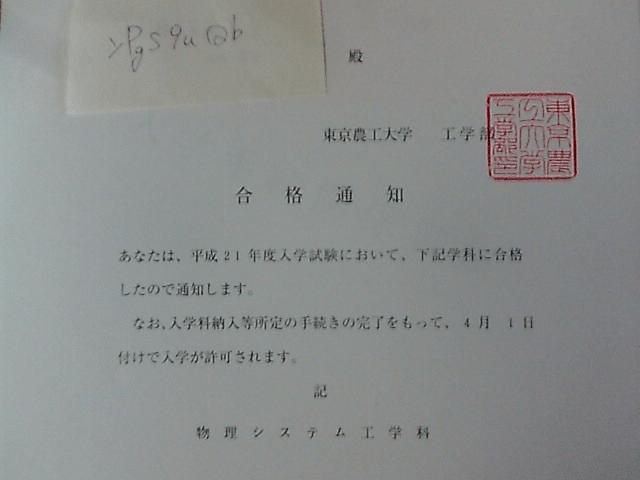 >Pgs9u@b
殿
東京農工大学 工学部
東京農工大学工学部印
合格通知
あなたは、平成21年度入学試験において、下記学科に合格
したので通知します。
なお、入学料納入等所定の手続きの完了をもって、4月 1日
付けで入学が許可されます。
記
物理システム工学科